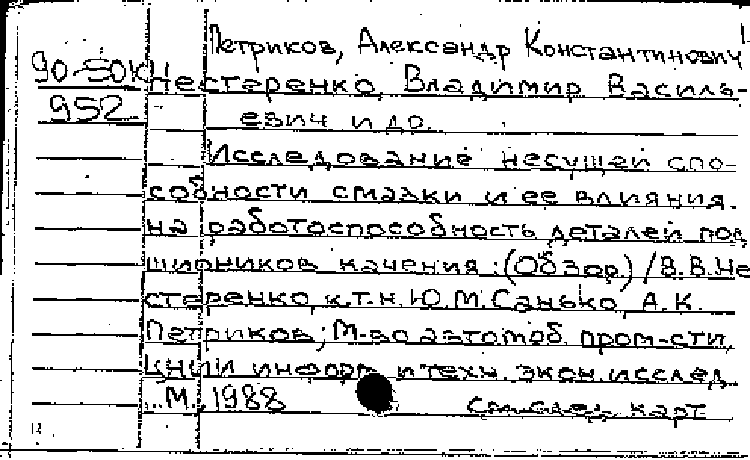 Петриков, Александр Константинович
90-50К Нестеренко, Владимир Василь-
952 евич и др.
Исследование несущей спо-
собности смазки и ее влияния
на работоспособность деталей под
шипников качения : (Обзор.) / В.В. Не
стеренко, к.т.н. Ю.М. Санько, А.К.
Петриков; М-во автомоб. пром-сти,
ЦНИИ информ. и техн. экон. исслед.
М., 1988 См. след. карт